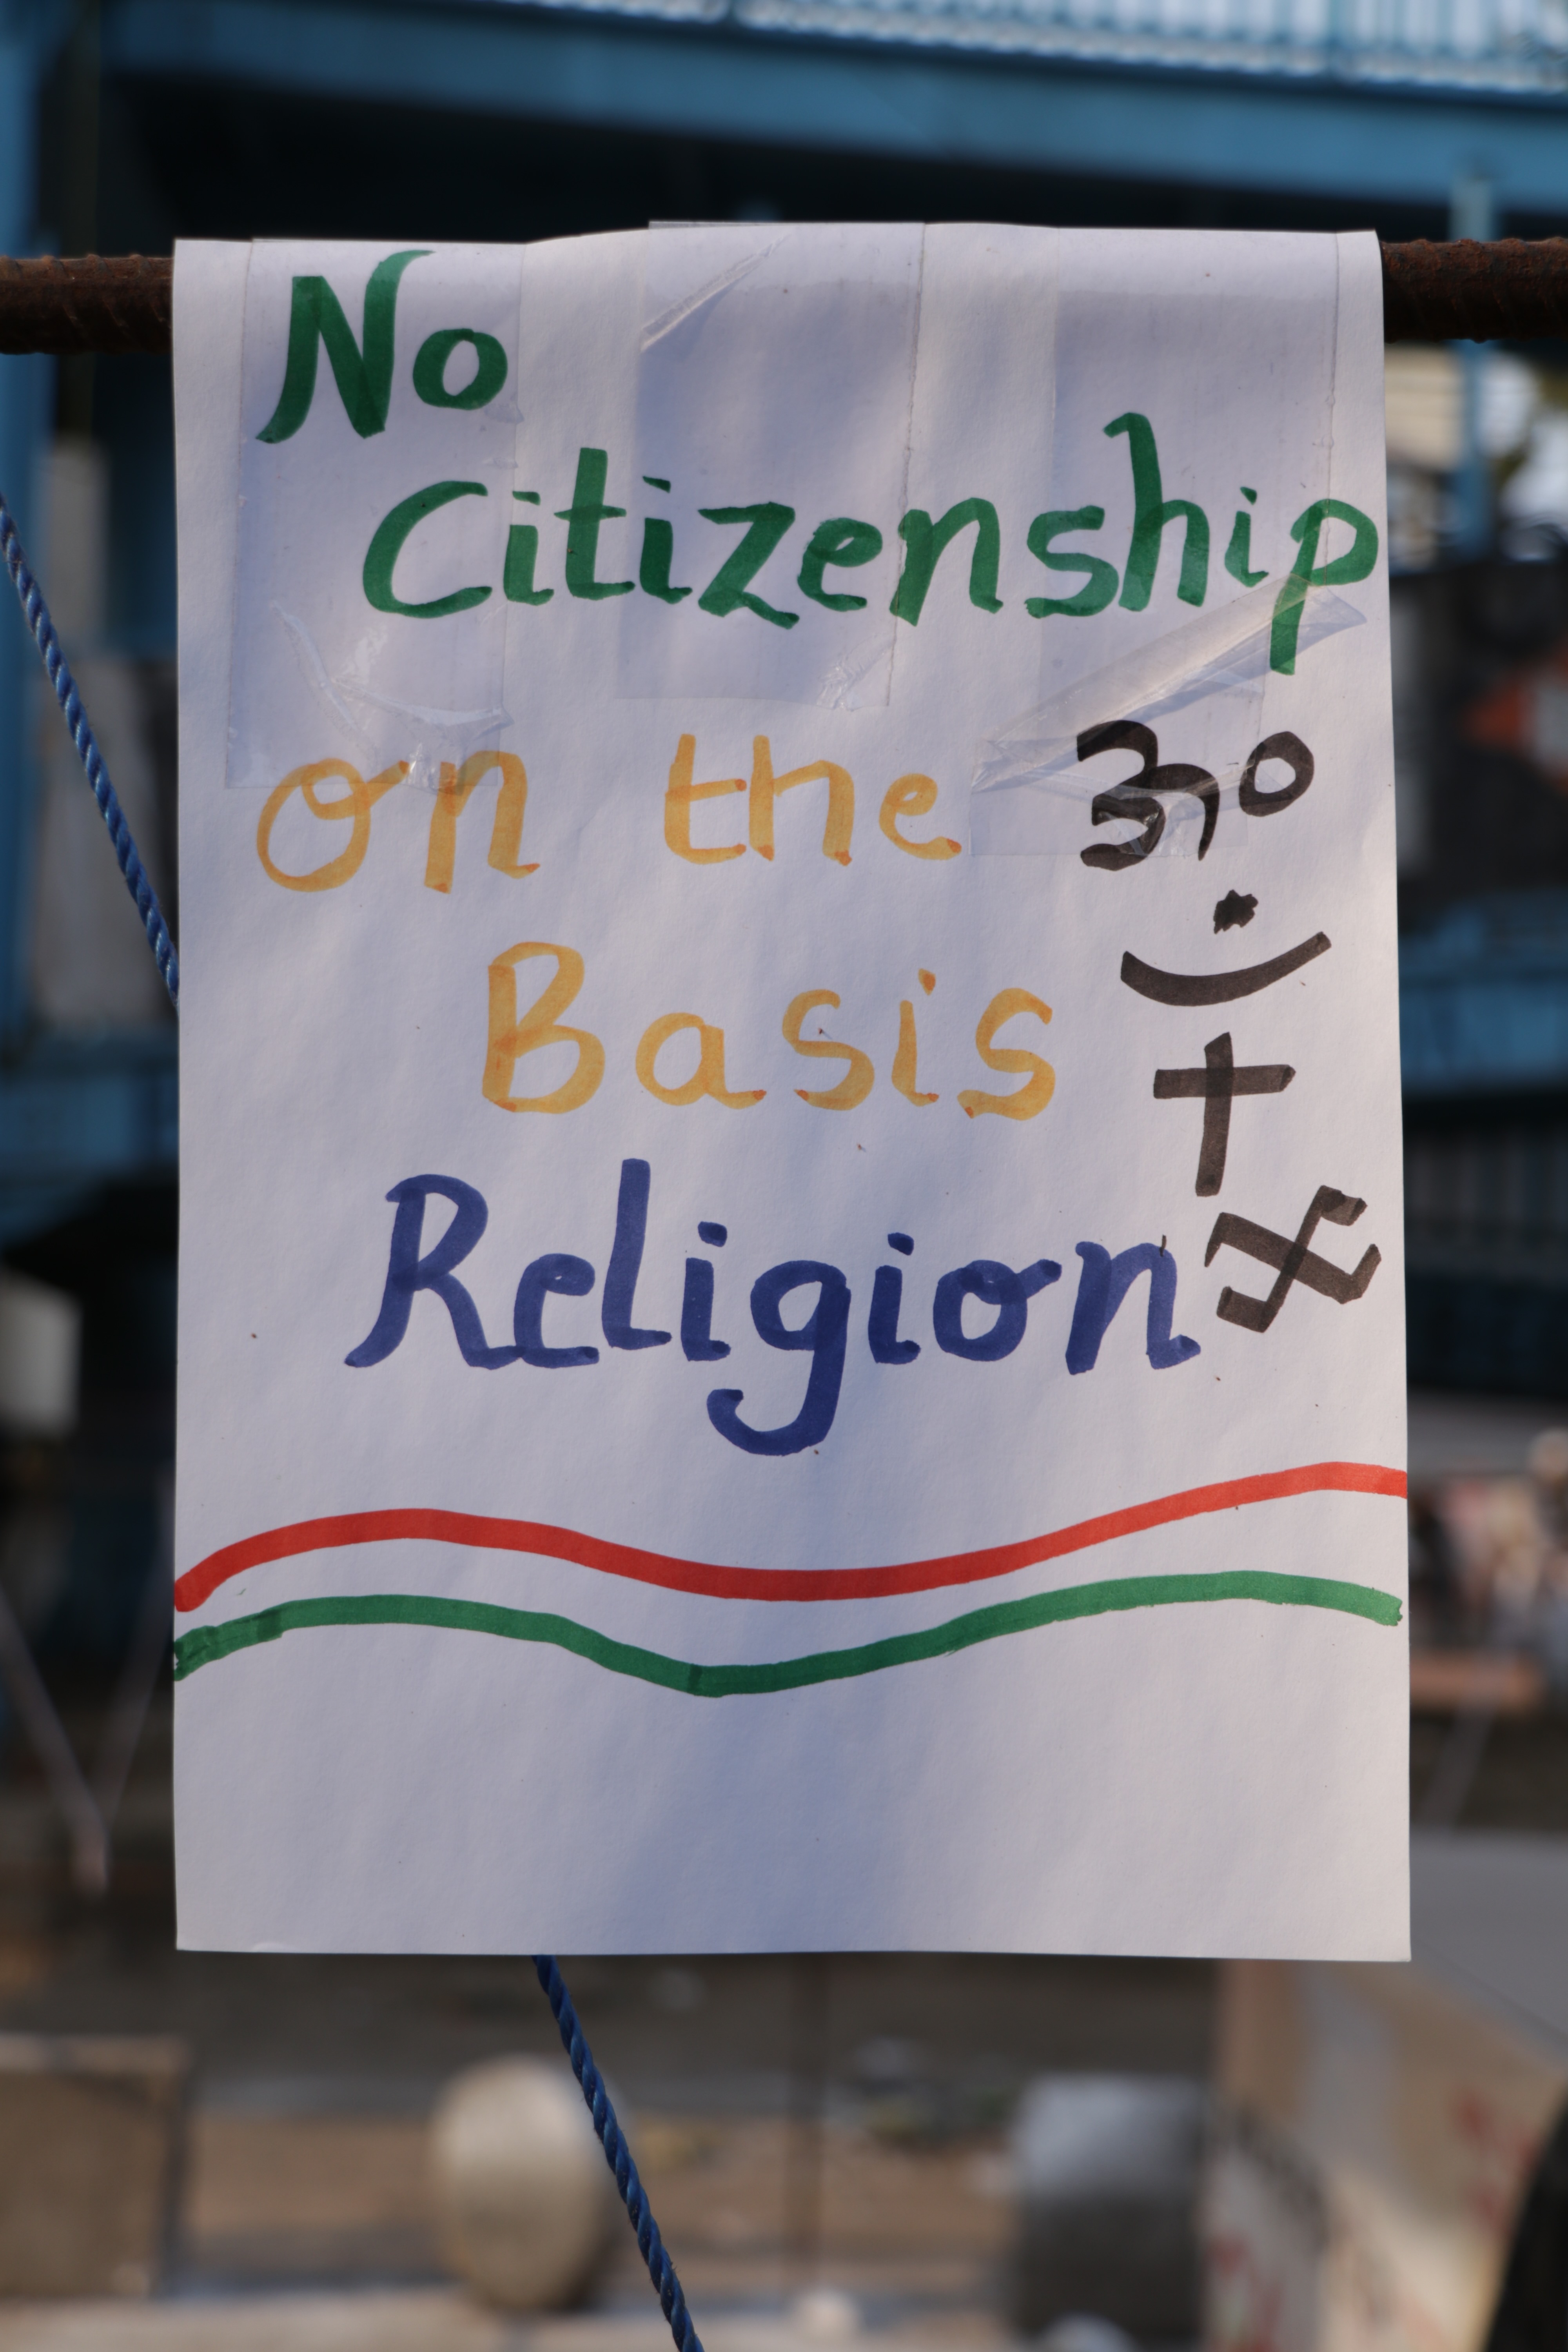 No
Citizenship
on the
Basis
Religion